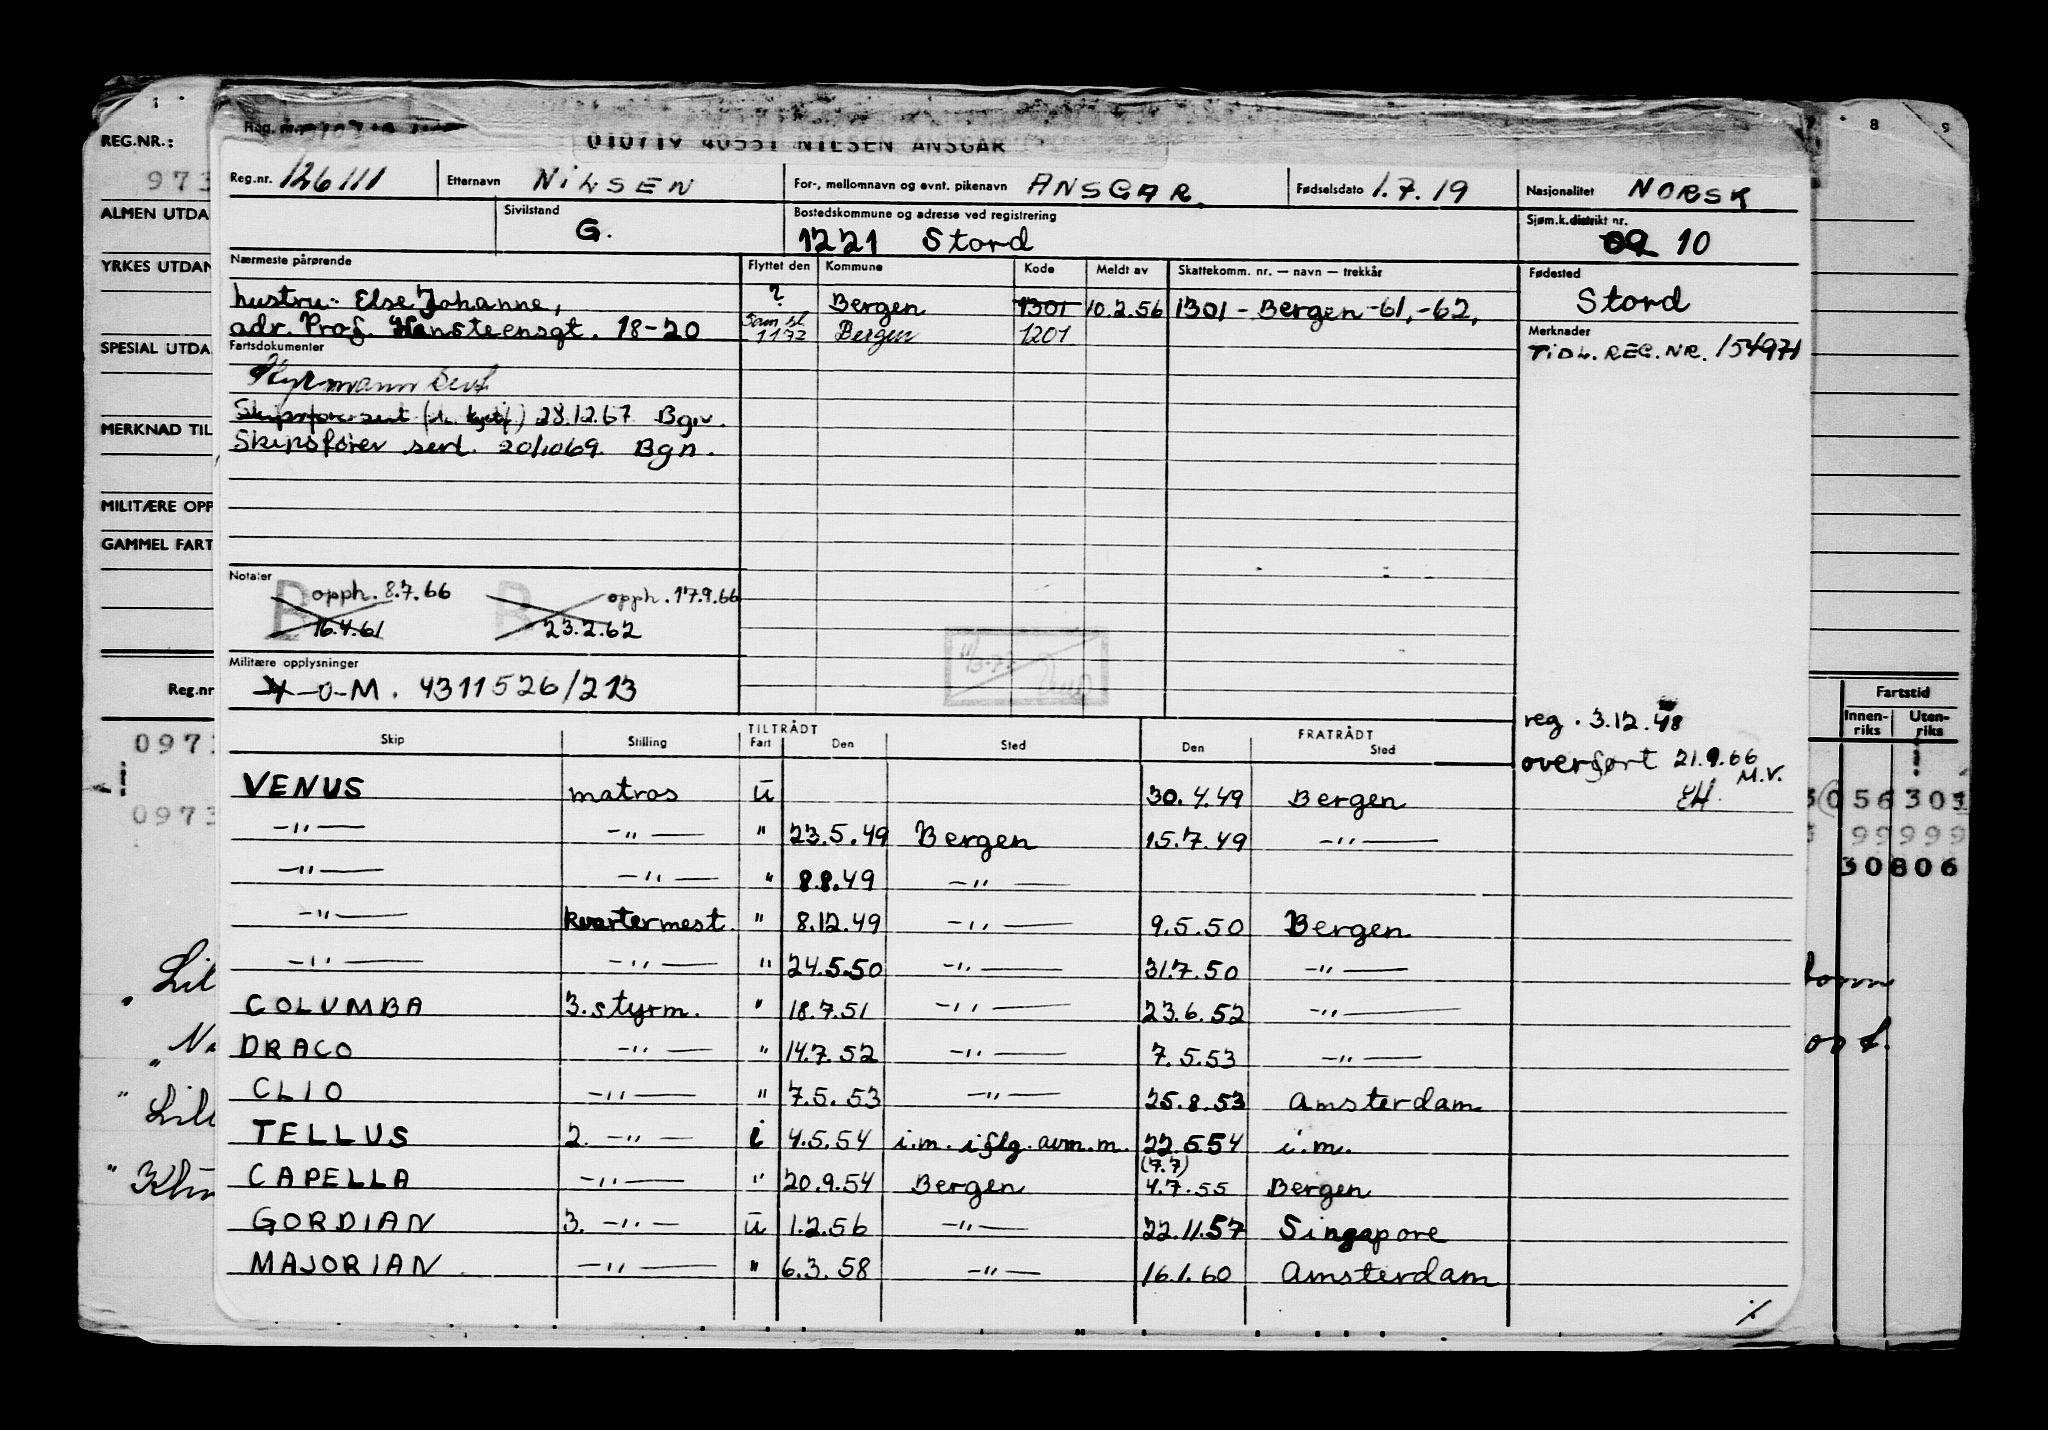 010719 40551 NILSEN ANSGAR
Reg.nr. 126111 Etternavn NILSEN For-, mellomnavn og evnt. pikenavn ANSGAR. Fødselsdato 1.7.19 Nasjonalitet NORSK
Sivilstand G. Bostedskommune og adresse ved registrering 1221 Stord Sjøm.k.distrikt nr. 09 10
Nærmeste pårørende Flyttet den Kommune Kode Meldt av Skattekomm. nr. — navn — trekkår Fødested
hustru: Else Johanne, ? Bergen 1301 10.2.56 1301 - Bergen -61, -62, Stord
adr. Prof. Hansteensgt. 18-20 1172 Bergen 1201
Merknader
TIDL. REG. NR. 154971
Fartsdokumenter
Styrmann
28.12.67 Bgn.
Skipsfører sert. 20/10 69. Bgn.
Notater
B opph. 8.7.66 B opph. 17.9.66
16.4.61 23.2.62
Militære opplysninger
-0-M. 4311526/213
reg. 3.12.48
overført 21.9.66
M.V.
EH.
TILTRÅDT FRATRÅDT
Skip Stilling Fart Den Sted Den Sted
VENUS matros ū 30.4.49 Bergen
—"— —"— " 23.5.49 Bergen 15.7.49 —"—
—"— —"— " 8.8.49 —"—
—"— kvartermest. " 8.12.49 —"— 9.5.50 Bergen
—"— —"— " 24.5.50 —"— 31.7.50 —"—
COLUMBA 3. styrm. " 18.7.51 —"— 23.6.52 —"—
DRACO —"— " 14.7.52 —"— 7.5.53 —"—
CLIO —"— " 7.5.53 —"— 25.8.53 Amsterdam
TELLUS 2. —"— i 4.5.54 i.m. iflg. avm.m. 22.5.54 i.m.
(7.7)
CAPELLA —"— " 20.9.54 Bergen 4.7.55 Bergen
GORDIAN 3. —"— ū 1.2.56 —"— 22.11.57 Singapore
MAJORIAN —"— " 6.3.58 —"— 16.1.60 Amsterdam
REG.NR.:
973
ALMEN UTDA
YRKES UTDAN
SPESIAL UTDA
MERKNAD TIL
MILITÆRE OPP
GAMMEL FART
Reg.nr
0973
0973
Lil
Lill
8 9
Fartstid
Innen-riks Uten-riks
056 303
99999
30806